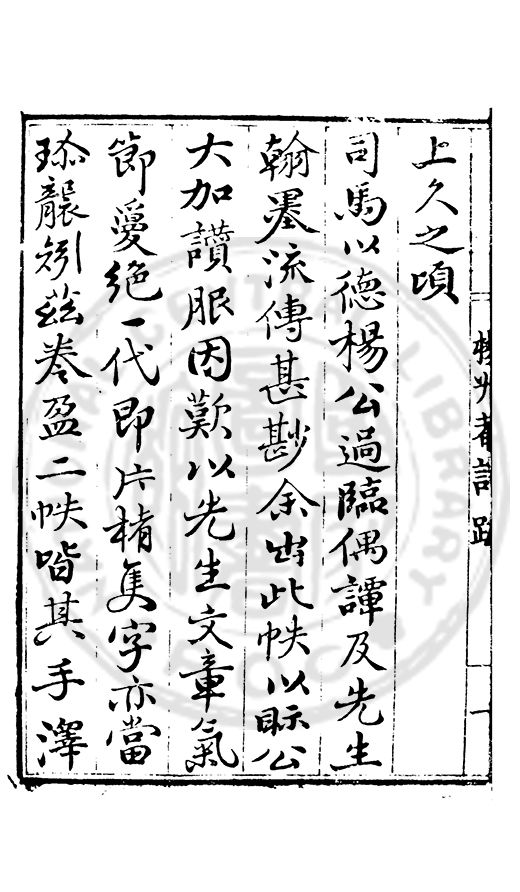 上久之頃
司馬以德楊公過臨偶譚及先生
翰墨流傳甚尠余出此帙以眎公
大加讚服因歎以先生文章氣
節夐絕一代即片楮隻字亦當
珍襲矧茲卷盈二帙皆其手澤